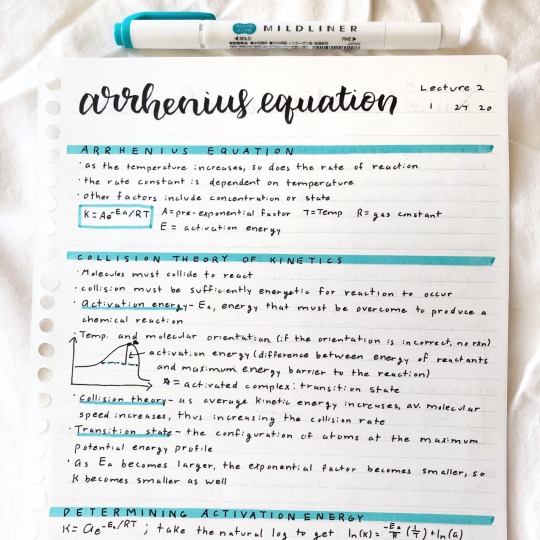 MILDLINER
BOLD
FINE
arrhenius equation
Lecture 2
1 27 20
ARRHENIUS EQUATION
· as the temperature increases, so does the rate of reaction
· the rate constant is dependent on temperature
· other factors include concentration or state
K = Ae^-Ea/RT A = pre-exponential factor T = Temp R = gas constant
E = activation energy
COLLISION THEORY OF KINETICS
· Molecules must collide to react
· collision must be sufficiently energetic for reaction to occur
· Activation energy - Ea, energy that must be overcome to produce a
chemical reaction
· Temp. and molecular orientation (if the orientation is incorrect, no rxn)
activation energy (difference between energy of reactants
and maximum energy barrier to the reaction)
= activated complex: transition state
· Collision theory - as average kinetic energy increases, av. molecular
speed increases, thus increasing the collision rate
· Transition state - the configuration of atoms at the maximum
potential energy profile
· as Ea becomes larger, the exponential factor becomes smaller, so
K becomes smaller as well
DETERMINING ACTIVATION ENERGY
K = Ae^-Ea/RT ; take the natural log to get ln(K) = -Ea/R (1/T) + ln(a)